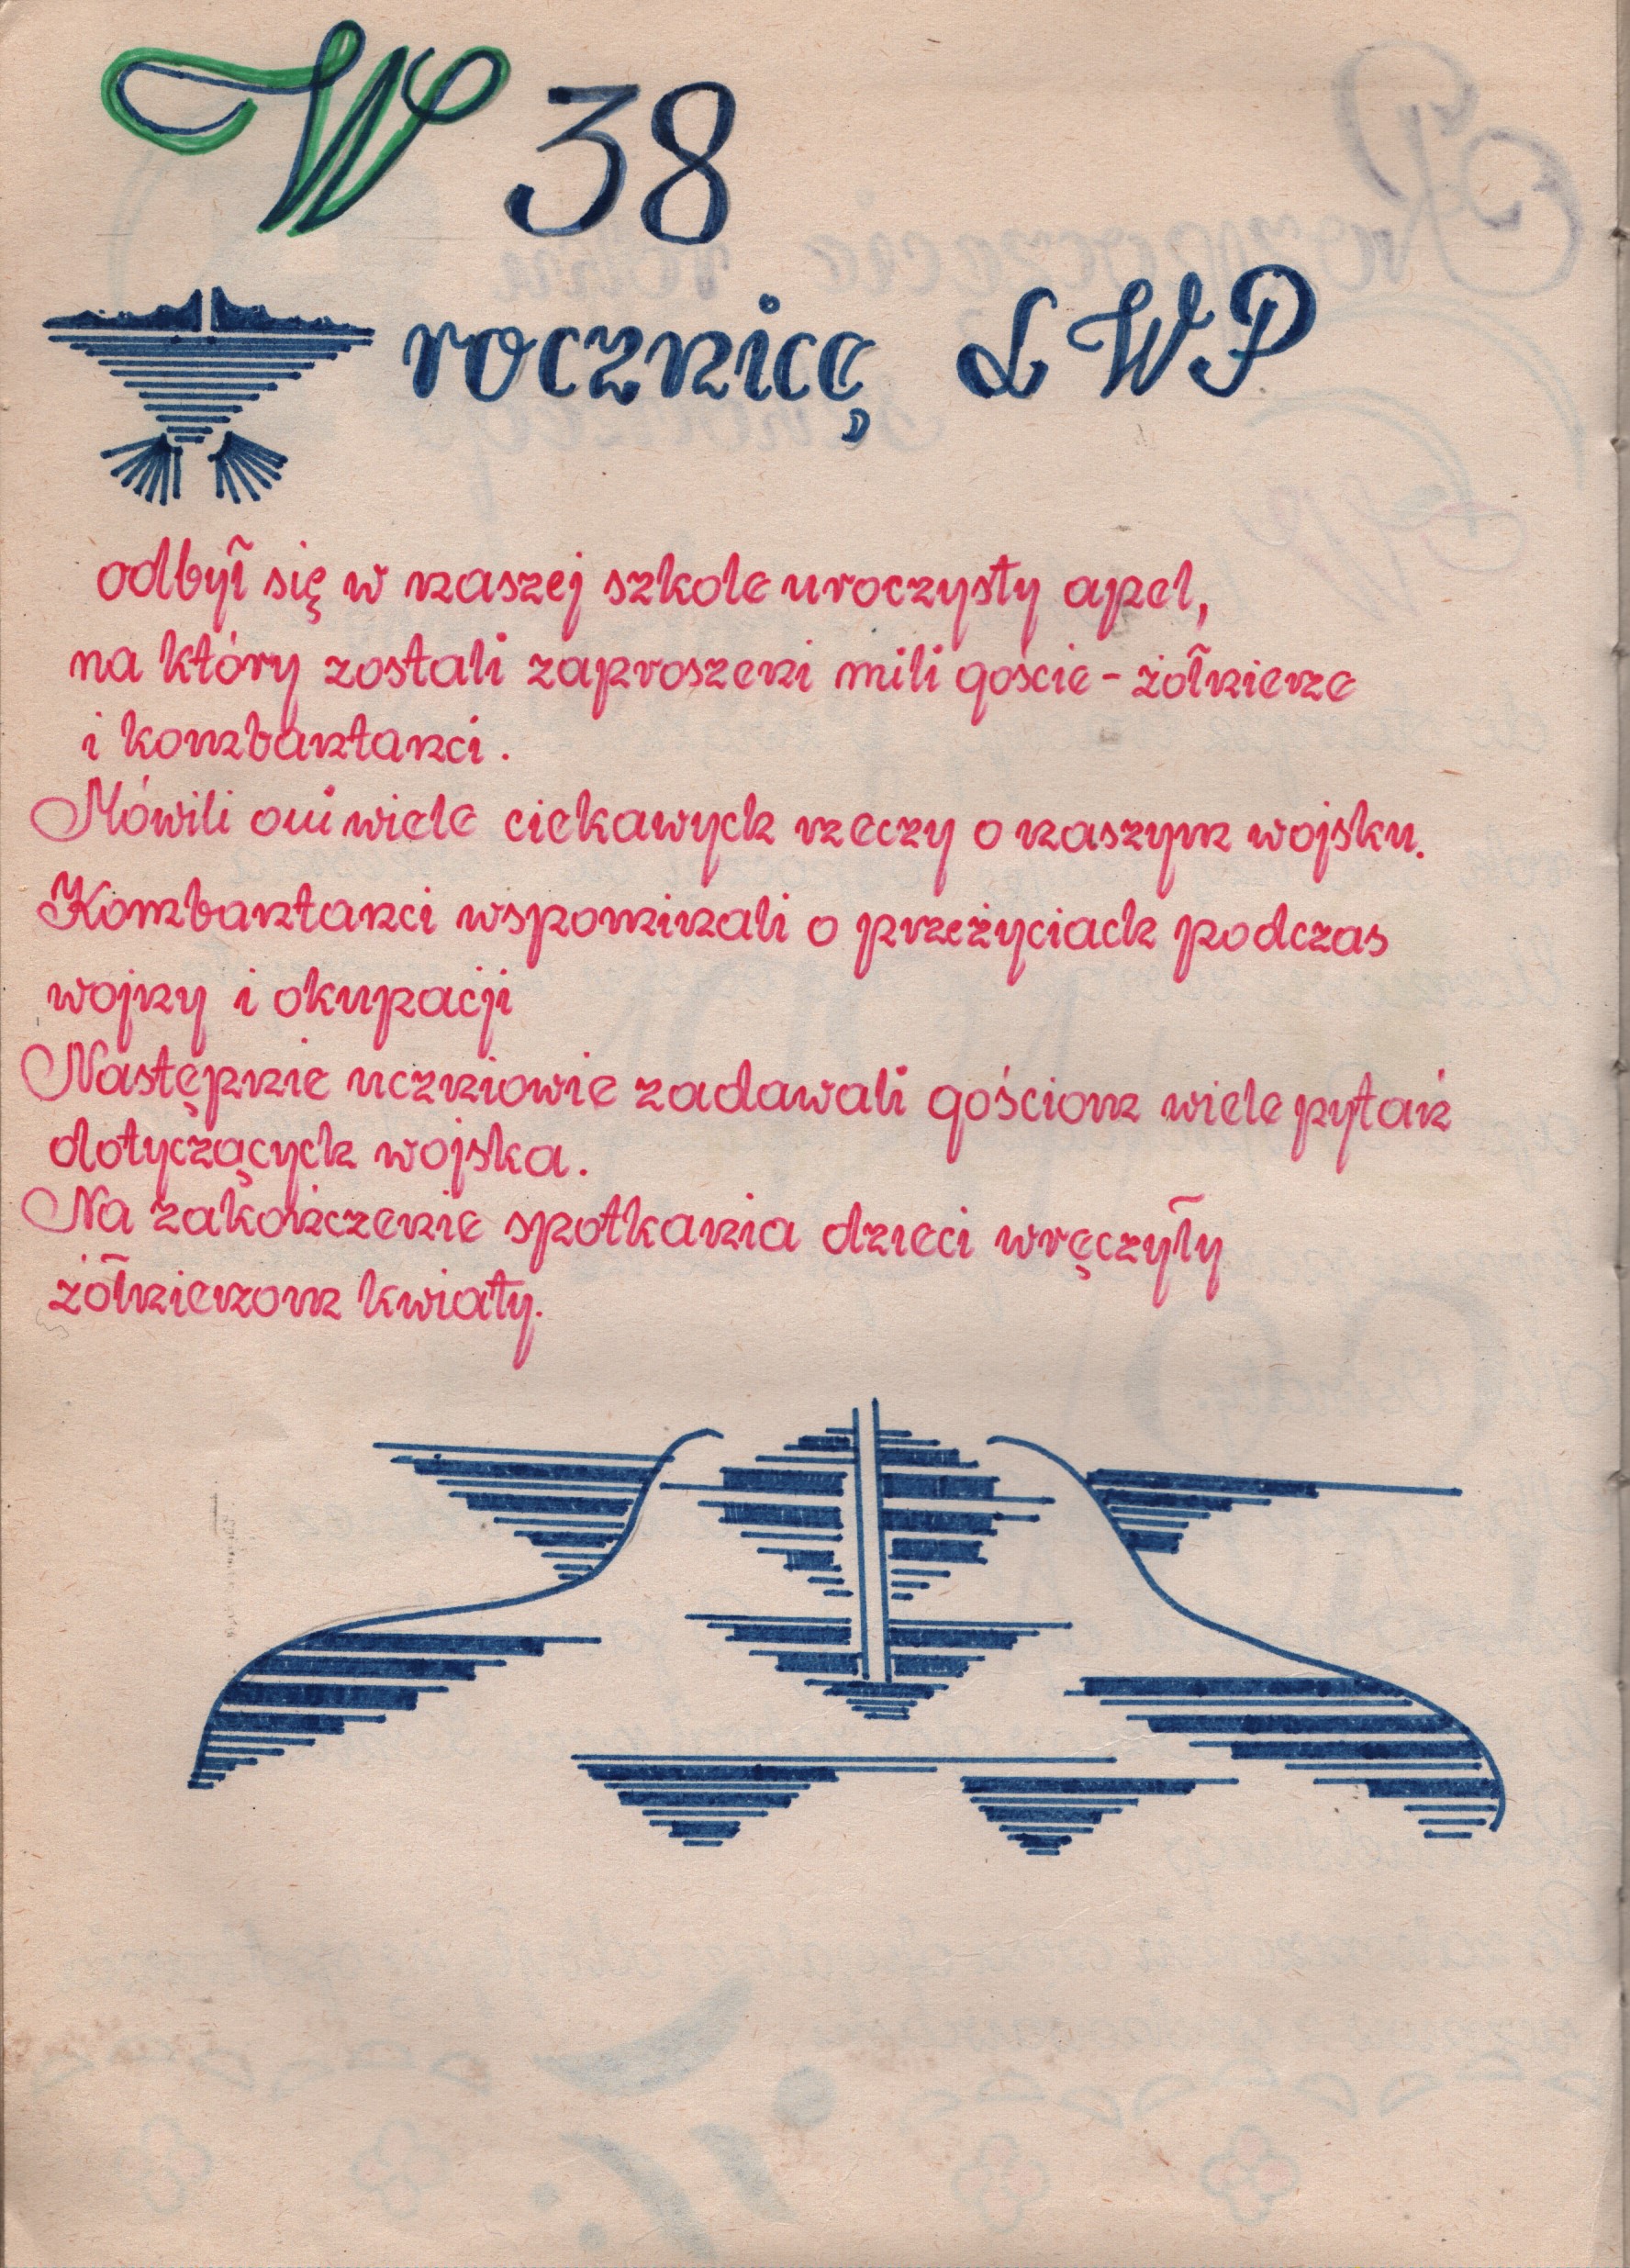 W 38
rocznicę LWP
odbył się w naszej szkole uroczysty apel,
na który zostali zaproszeni mili goście - żołnierze
i kombantanci.
Mówili oni wiele ciekawych rzeczy o naszym wojsku.
Kombantanci wspominali o przeżyciach podczas
wojny i okupacji
Następnie uczniowie zadawali gościom wiele pytań
dotyczących wojska.
Na zakończenie spotkania dzieci wręczyły
żołnierzom kwiaty.